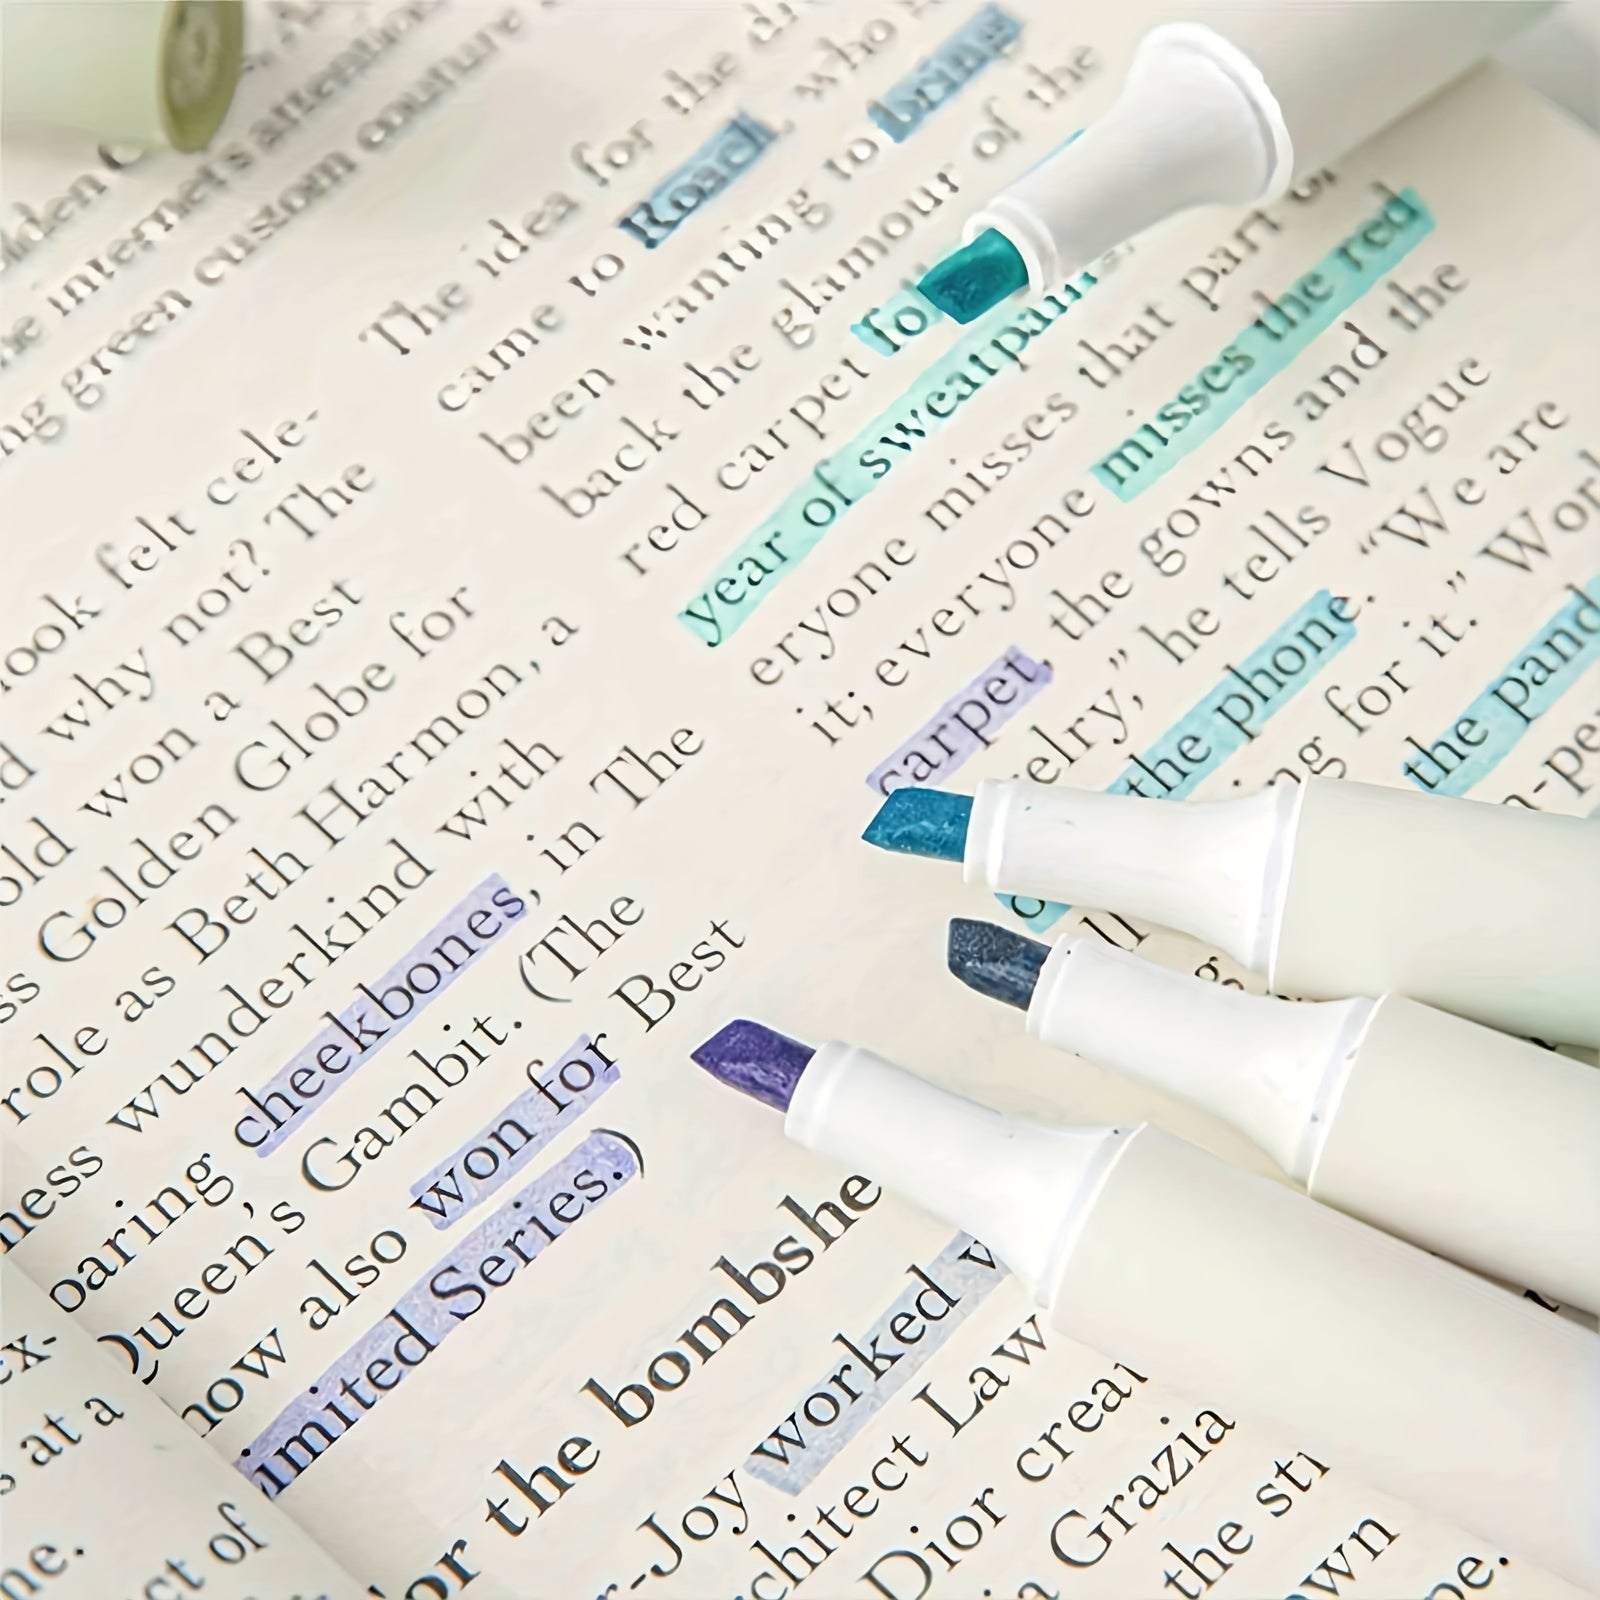 olden
he internet's attention
ng green custom couture
ook felt cele-
d why not? The
old won a Best
ss Golden Globe for
role as Beth Harmon, a
ness wunderkind with
paring cheekbones, in The
Queen's Gambit. (The
now also won for Best
imited Series.)
ex-
s at a
ct of
ne.
The idea for the
came to Roach, who
been wanting to bring
back the glamour of the
red carpet fo
year of sweatpan
eryone misses that part of
it; everyone misses the red
carpet, the gowns and the
elry," he tells Vogue
the phone. "We are
ing for it." Worl
the pand
n-pe
or the bombshe
r-Joy worked w
rchitect Law
Dior creat
ia Grazia
the sti
own
pe.